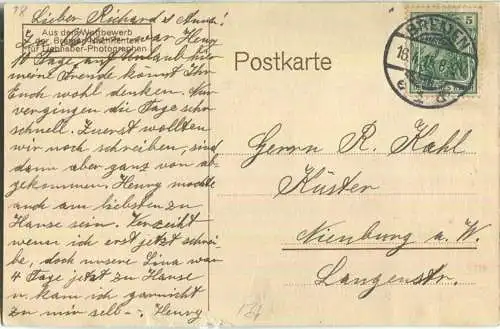 78
Lieber Richard u Anna!
Aus dem Wettbewerb
der Bremer Nachrichten
für Liebhaber-Photographen
war Henry
10 Tage auf Urlaub hier
meine Freude könnt Ihr
Euch wohl denken. Nur
vergingen die Tage sehr
schnell. Zuerst wollten
wir noch schreiben, sind
dann aber ganz von ab
gekommen. Henry mochte
auch am liebsten zu
Hause sein. Verzeiht
wenn ich erst jetzt schrei
be, doch unsere Lina war
4 Tage jetzt zu Hause
u. kam ich garnicht
zu mir selb-. Henry
Postkarte
BREMEN
5
Herrn R. Kahl
Küster
Nienburg a. W.
Langenstr.